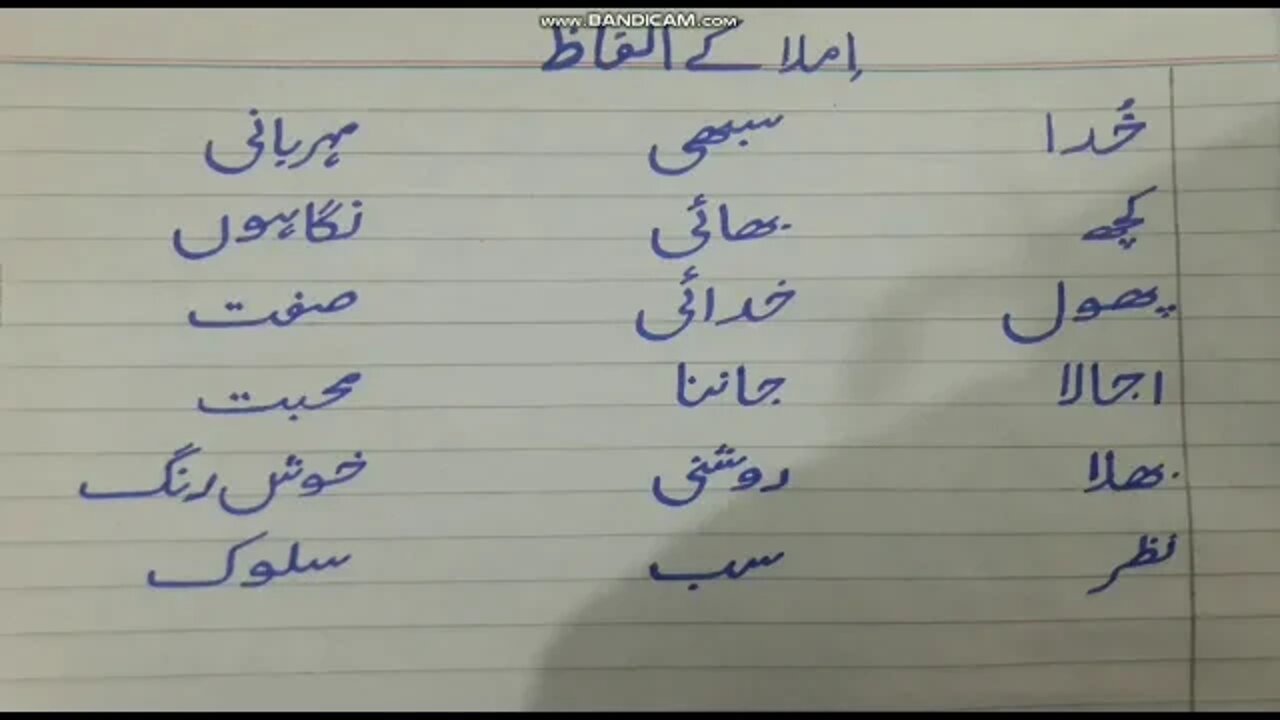 www.BANDICAM.com
اِملا کے الفاظ
خُدا سبھی مہربانی
کچھ بھائی نگاہوں
پھول خدائی صفت
اجالا جاننا محبت
بھلا روشنی خوش رنگ
نظر سب سلوک